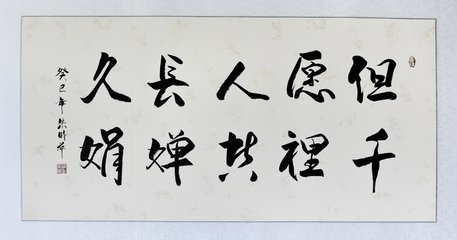 但千
愿裡
人共
長嬋
久娟
癸巳年